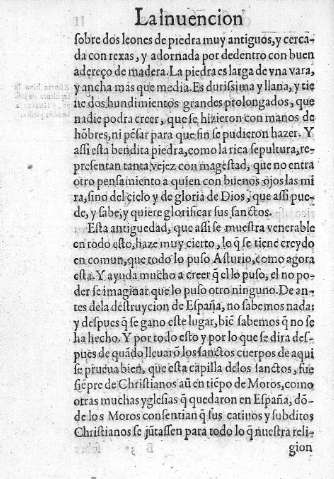 La inuencion
sobre dos leones de piedra muy antiguos, y cerca-
da con rexas, y adornada por dedentro con buen
adereço de madera. La piedra es larga de vna vara,
y ancha más que media. Es durissima y llana, y tie
ne dos hundimientos grandes prolongados, que
nadie podra creer, que se hizieron con manos de
hõbres, ni pésar para que fin se pudieron hazer. Y
assi esta bendita piedra, como la rica sepultura, re-
presentan tanta vejez con magestad, que no entra
otro pensamiento a quien con buenos ojos las mi
ra, sino del cielo y de gloria de Dios, que assi pue-
de, y sabe, y quiere glorificar sus sanctos.
Esta antiguedad, que assi se muestra venerable
en todo esto, haze muy cierto, lo q̃ se tiene creydo
en comun, que todo lo puso Asturio, como agora
esta. Y ayuda mucho a creer q̃ el lo puso, el no po-
der se imaginar que lo puso otro ninguno. De an-
tes dela destruycion de España, no sabemos nada:
y despues q̃ se gano este lugar, biē sabemos q̃ no se
ha hecho. Y por todo esto y por lo que se dira des-
pues de quãdo lleuarõ los sanctos cuerpos de aqui
se prueua bien, que esta capilla delos sanctos, fue
siēpre de Christianos aũ en tiēpo de Moros, como
otras muchas yglesias q̃ quedaron en España, dõ-
de los Moros consentian q̃ sus catiuos y subditos
Christianos se jũtassen para todo lo q̃ nuestra reli-
gion